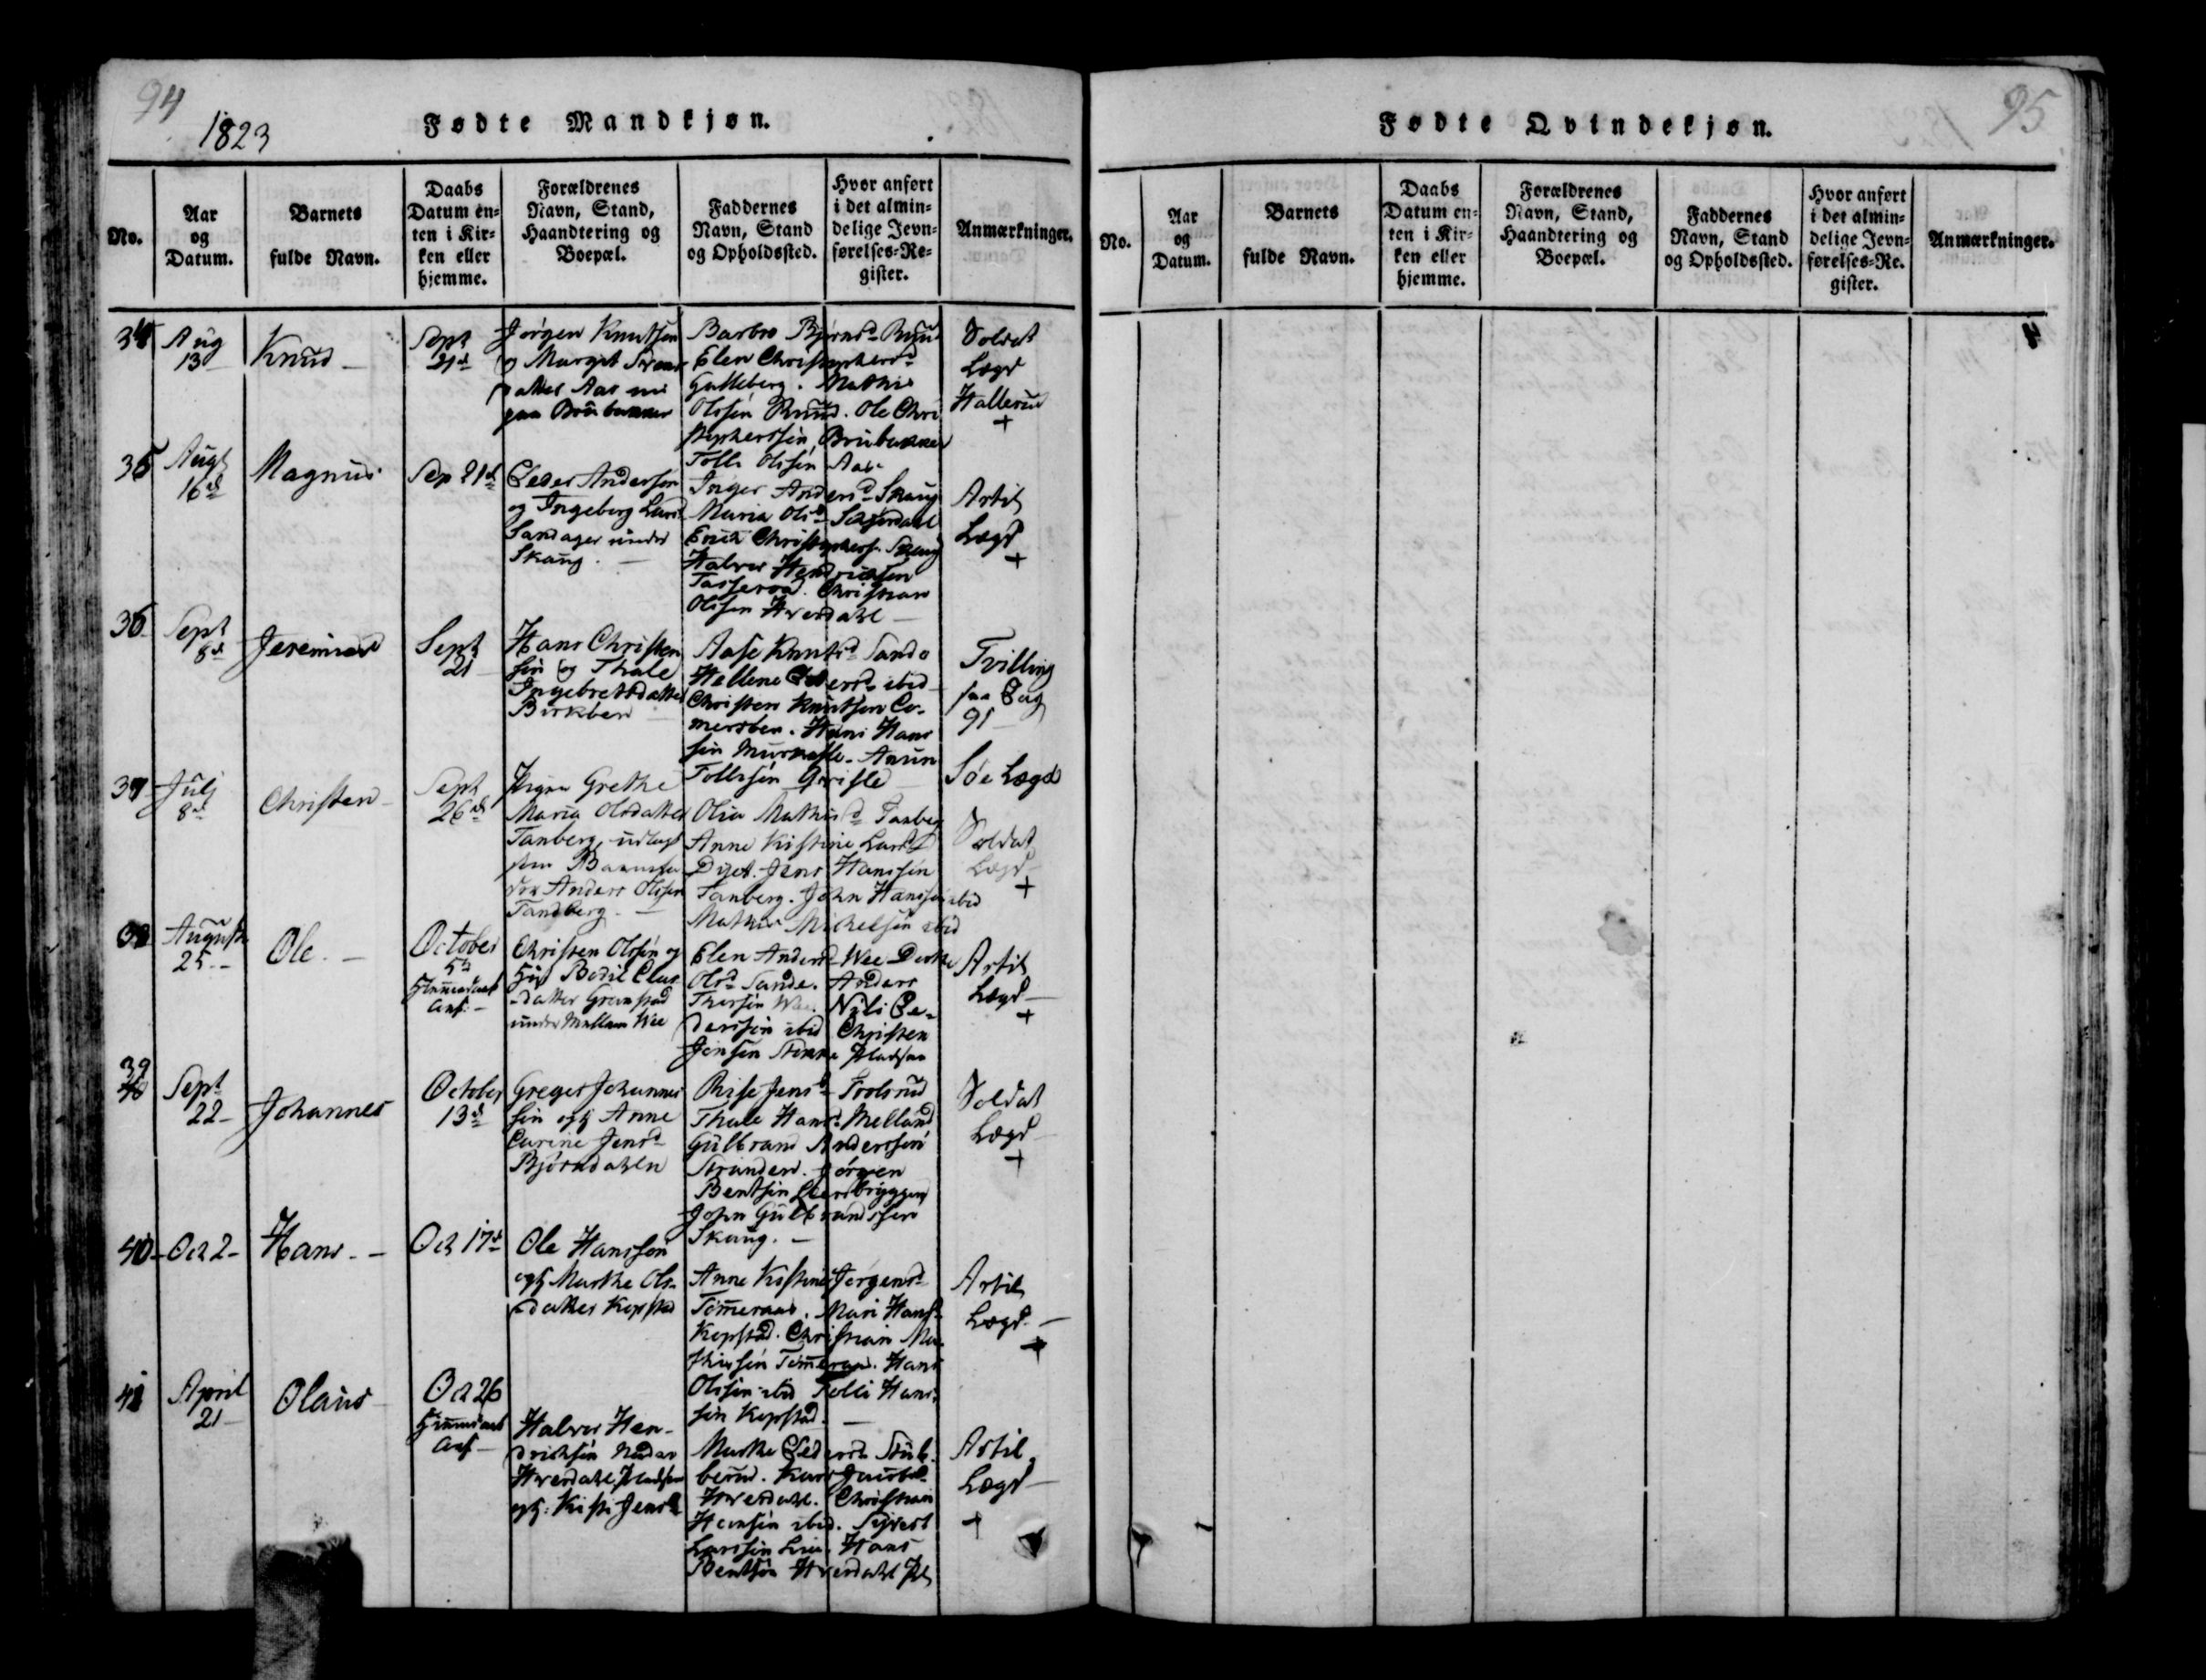 94
1823
Fødte Mandkjøn.
No.
Aar
og
Datum.
Barnets
fulde Navn.
Daabs
Datum en-
ten i Kir-
ken eller
hjemme.
Forældrenes
Navn, Stand,
Haandtering og
Boepæl.
Faddernes
Navn, Stand
og Opholdssted.
Hvor anført
i det almin-
delige Jevn-
førelses-Re-
gister.
Anmærkninger.
34
Aug
13
Knud
Sept
21d
Jørgen Knutsen
og Margit
datter Aas
Barbro Bjørnsd
Elen Christophersd
Gulleberg. Mathis
Olssøn Ruud. Ole Chri
stopherssøn, Brubakken
Tolle Olssøn Aas
Soldat
Lægd
Hallerud
+
35
Augt
16d
Magnus
Sep 21d
Peder Anderson
og Ingeborg Larsd
Sandager under
Skaug.
Inger Andersd Skaug
Maria Olsd
Christophers. Skaug
Halvor Hendricksen
Christian
Olssen Hverdahl
Artil
Lægd
+
36
Sept
8d
Jeremias
Sept
21
Hans Christen
søn og Thale
Ingebretsdatter
Birkben
Aase Knutsd Sando
Hellene Pedersd ibid
Christen Knutsøn Co-
mersben. Hans Hans
søn
Tollefsøn
Tvilling
saa Pag
91
Søe Lægd
37
Julj
8d
Christen
Sept
26d
Pigen Grethe
Maria Olsdatter
Tanberg, udlagt
som Barnefa
der Anders Olssen
Tandberg.
Olia Mathisd Tanberg
Anne Kistine Larsd
Jens Hanssøn
Tanberg. John Hanssøn ibid
Mathis Michelsøn ibid
Soldat
Lægd
+
38
August
25.
Ole.
October
5te
Hjemmedaab
Conf.
Christen Olssøn og
H. Bodil Clas
datter Grønstad
under Mellom Wee
Elen Andersd Wee
Olsd Sande. Anders
Thorsøn Wee Nils Pe-
derssøn ibid Christen
Jensen Pladsen
Artil
Lægd
+
39
40
Sept
22
Johannes
October
13d
Greger Johannes
søn og H Anne
Carine Jensd
Bjørndahlen
Rise Jensd
Thale Hansd Melland
Gulbrand Anderssøn
Stranden. Jørgen
Bentsøn
John Gulbrandssøn
Skaug.
Soldat
Lægd
+
40
Oct 2
Hans
Oct 17d
Ole Hanssøn
og H Marthe Ols-
datter Kopstad
Anne Kistine Jørgensd
Tømeraas. Mari Hansd
Kopstad. Christian Ma-
thissøn Tømeraas. Hans
Olssøn ibid Tolli Hans
søn Kopstad
Artil
Lægd.
+
41
April
21
Olaus
Oct 26
Hjemmedaab
Conf
Halvor Hen-
drichsøn Nedar
Hverdahl Pladsen
og H: Kisti Jensd
Marthe Pedersd Stub
berud. Kari Jacobsd
Hverdahl. Christian
Hansøn ibid. Syvert
Larssøn Lia. Hans
Bentsøn Hverdahl Pl
Artil
Lægd
+
95
Fødte Qvindekjøn.
No.
Aar
og
Datum.
Barnets
fulde Navn.
Daabs
Datum en-
ten i Kir-
ken eller
hjemme.
Forældrenes
Navn, Stand,
Haandtering og
Boepæl.
Faddernes
Navn, Stand
og Opholdssted.
Hvor anført
i det almin-
delige Jevn-
førelses-Re-
gister.
Anmærkninger.